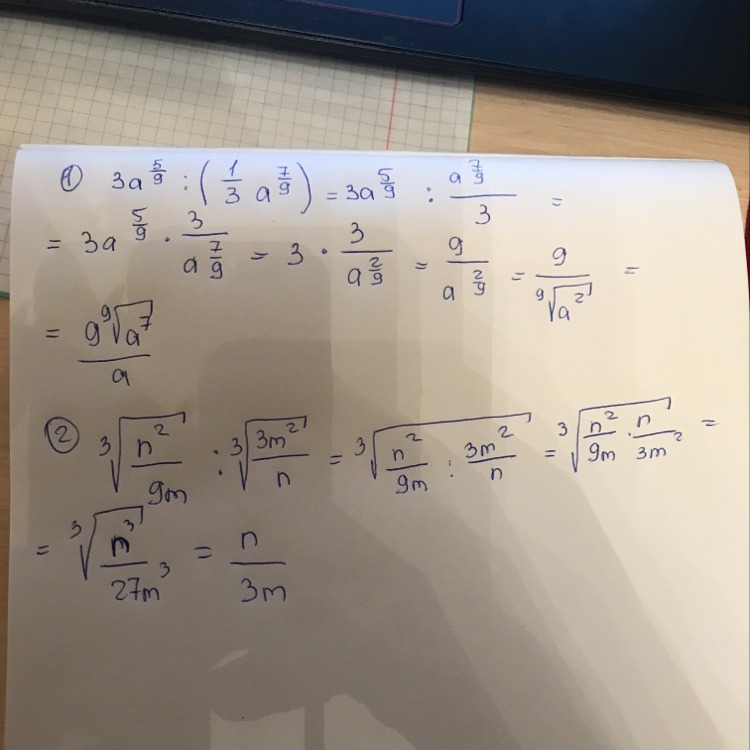 ① 3a^(5/9) : (1/3 a^(7/9)) = 3a^(5/9) : a^(7/9)/3 =
= 3a^(5/9) · 3/a^(7/9) = 3 · 3/a^(2/9) = 9/a^(2/9) = 9/⁹√(a²) =
= 9⁹√(a⁷)/a
② ³√(n²/9m) : ³√(3m²/n) = ³√(n²/9m : 3m²/n) = ³√(n²/9m · n/3m²) =
= ³√(n³/27m³) = n/3m